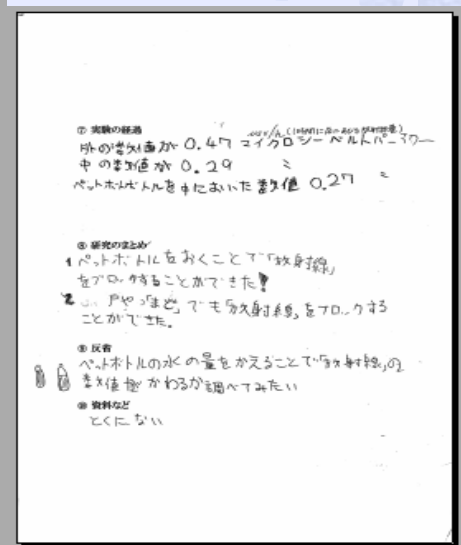 ⑦ 実験の経過
外の数値が 0.47 マイクロシーベルトパーアワー
中の数値が 0.29 〃
ペットボトルを中においた数値 0.27 〃
⑧ 研究のまとめ
1 ペットボトルをおくことで「放射線」
をブロックすることができた!
2 戸や「まど」でも「放射線」をブロックする
ことができた。
⑨ 反省
ペットボトルの水の量をかえることで「放射線」の
数値が かわるか調べてみたい
⑩ 資料など
とくにない